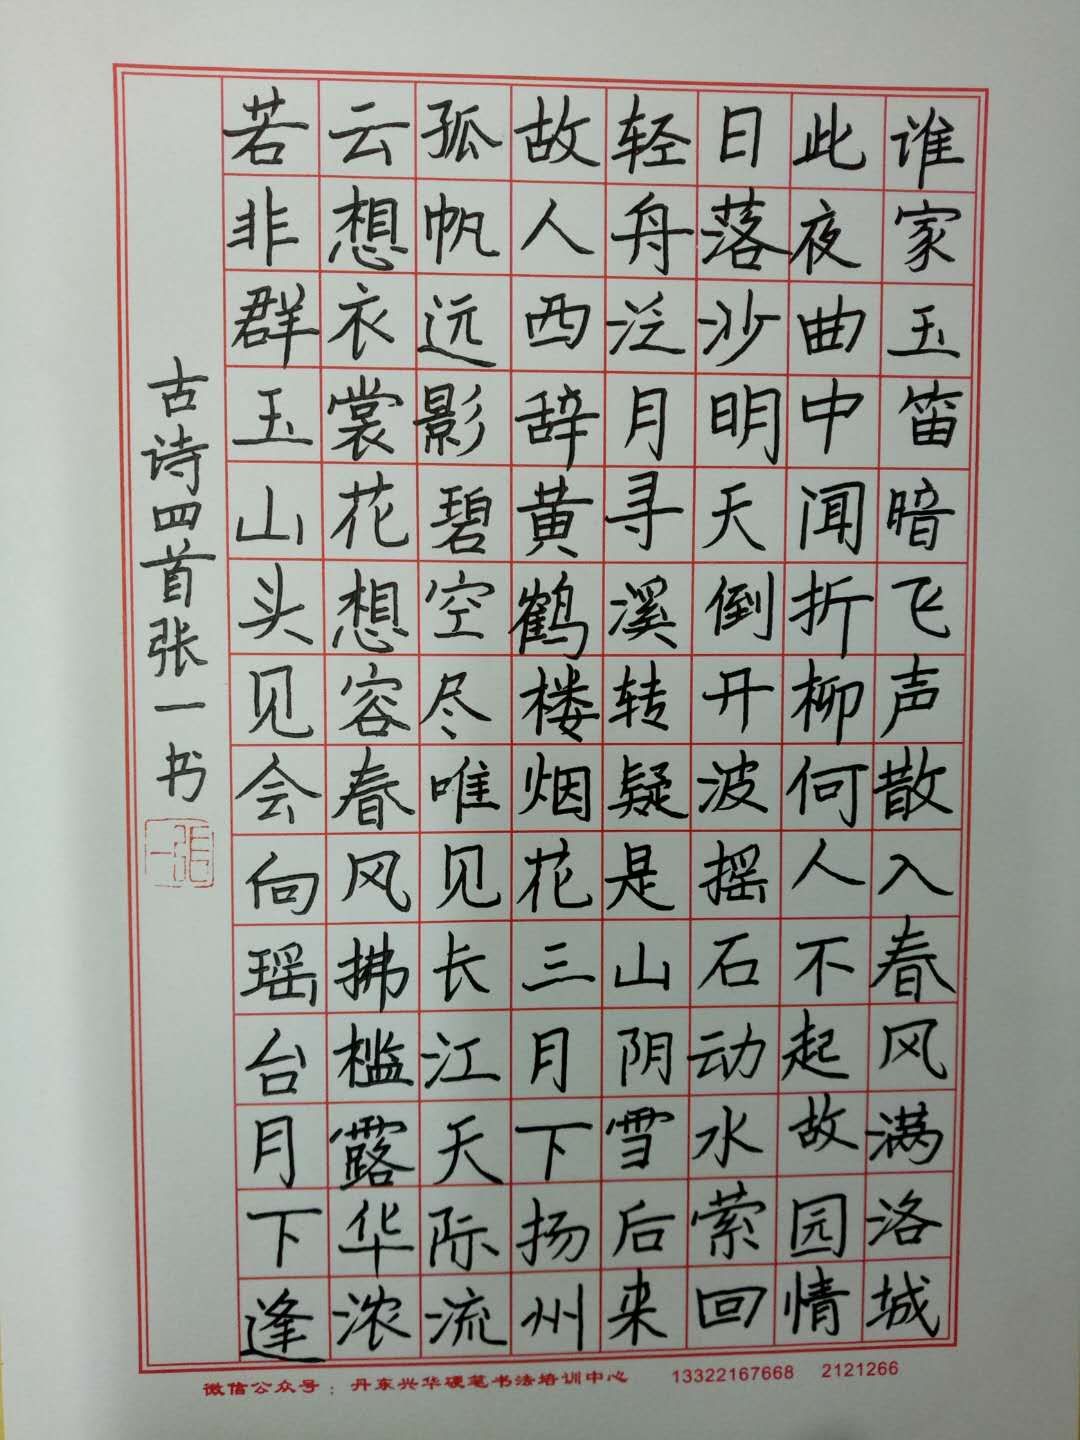 谁家玉笛暗飞声散入春风满洛城
此夜曲中闻折柳何人不起故园情
日落沙明天倒开波摇石动水萦回
轻舟泛月寻溪转疑是山阴雪后来
故人西辞黄鹤楼烟花三月下扬州
孤帆远影碧空尽唯见长江天际流
云想衣裳花想容春风拂槛露华浓
若非群玉山头见会向瑶台月下逢
古诗四首张一书
张一
微信公众号：丹东兴华硬笔书法培训中心 13322167668 2121266